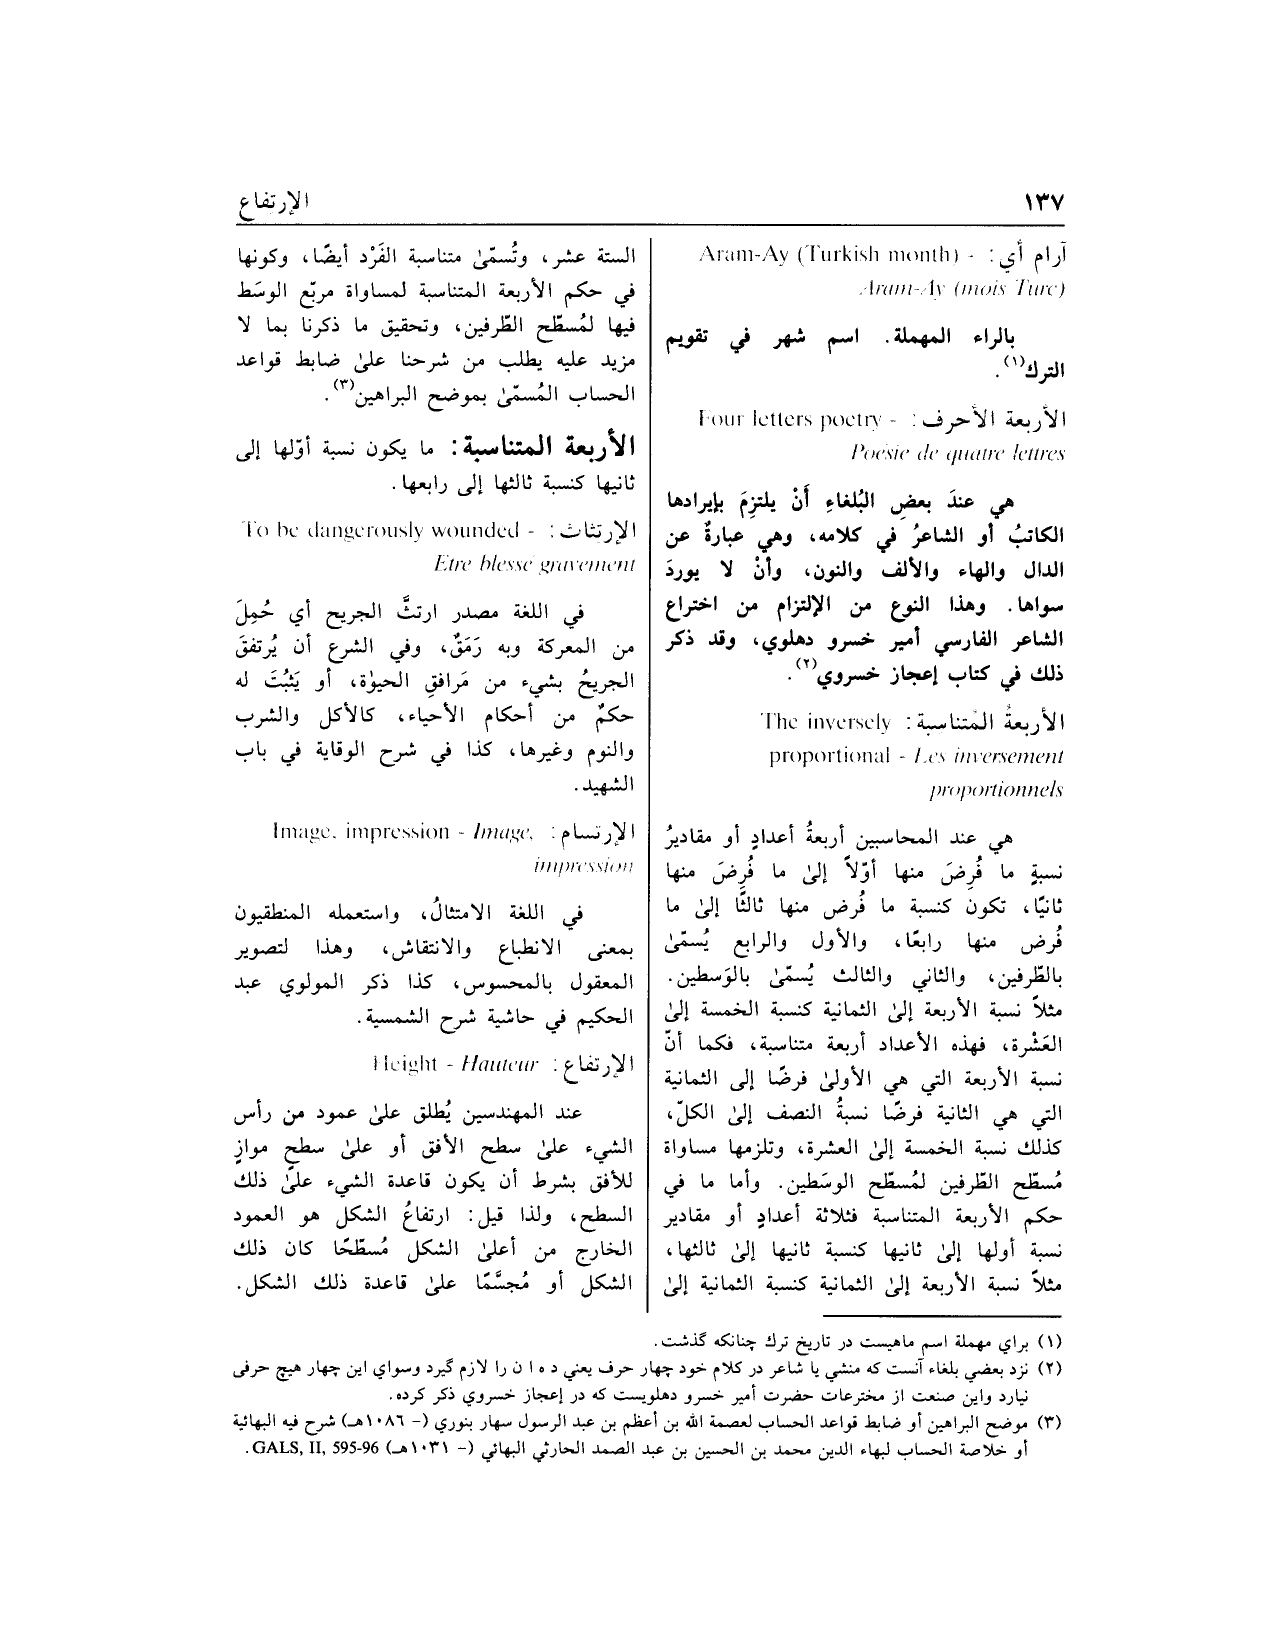 ١٣٧
الإرتفاع
آرام أي: Aram-Ay (Turkish month) -
Aram-Ay (mois Turc)
بالراء المهملة. اسم شهر في تقويم
الترك(١).
الأربعة الأحرف: Four letters poetry -
Poesie de quatre lettres
هي عندَ بعضِ البُلغاءِ أَنْ يلتزِمَ بإيرادها
الكاتبُ أو الشاعرُ في كلامه، وهي عبارةٌ عن
الدال والهاء والألف والنون، وأنْ لا يوردَ
سواها. وهذا النوع من الإلتزام من اختراع
الشاعر الفارسي أمير خسرو دهلوي، وقد ذكر
ذلك في كتاب إعجاز خسروي(٢).
الأربعةُ المُتناسبة: The inversely
proportional - Les inversement
proportionnels
هي عند المحاسبين أربعةُ أعدادٍ أو مقاديرُ
نسبةِ ما فُرِضَ منها أوّلاً إلىٰ ما فُرِضَ منها
ثانيًا، تكون كنسبة ما فُرض منها ثالثًا إلىٰ ما
فُرض منها رابعًا، والأول والرابع يُسمّىٰ
بالطّرفين، والثاني والثالث يُسمّىٰ بالوَسطين.
مثلاً نسبة الأربعة إلىٰ الثمانية كنسبة الخمسة إلىٰ
العَشْرة، فهذه الأعداد أربعة متناسبة، فكما أنّ
نسبة الأربعة التي هي الأولىٰ فرضًا إلى الثمانية
التي هي الثانية فرضًا نسبةُ النصف إلىٰ الكلّ،
كذلك نسبة الخمسة إلىٰ العشرة، وتلزمها مساواة
مُسطّح الطّرفين لمُسطّح الوسَطين. وأما ما في
حكم الأربعة المتناسبة فثلاثة أعدادٍ أو مقادير
نسبة أولها إلىٰ ثانيها كنسبة ثانيها إلىٰ ثالثها،
مثلاً نسبة الأربعة إلىٰ الثمانية كنسبة الثمانية إلىٰ
الستة عشر، وتُسمّىٰ متناسبة الفَرْد أيضًا، وكونها
في حكم الأربعة المتناسبة لمساواة مربّع الوسَط
فيها لمُسطّح الطّرفين، وتحقيق ما ذكرنا بما لا
مزيد عليه يطلب من شرحنا علىٰ ضابط قواعد
الحساب المُسمّىٰ بموضح البراهين(٣).
الأربعة المتناسبة: ما يكون نسبة أوّلها إلى
ثانيها كنسبة ثالثها إلى رابعها.
الإرتثاث: To be dangerously wounded -
Etre blesse gravement
في اللغة مصدر ارتثَّ الجريح أي حُمِلَ
من المعركة وبه رَمَقٌ، وفي الشرع أن يُرتفقَ
الجريحُ بشيء من مَرافقِ الحيوٰة، أو يَثبُتَ له
حكمٌ من أحكام الأحياء، كالأكل والشرب
والنوم وغيرها، كذا في شرح الوقاية في باب
الشهيد.
الإرتسام: Image, impression - Image,
impression
في اللغة الامتثالُ، واستعمله المنطقيون
بمعنى الانطباع والانتقاش، وهذا لتصوير
المعقول بالمحسوس، كذا ذكر المولوي عبد
الحكيم في حاشية شرح الشمسية.
الإرتفاع: Height - Hauteur
عند المهندسين يُطلق علىٰ عمود من رأس
الشيء علىٰ سطح الأفق أو علىٰ سطحٍ موازٍ
للأفق بشرط أن يكون قاعدة الشيء علىٰ ذلك
السطح، ولذا قيل: ارتفاعُ الشكل هو العمود
الخارج من أعلىٰ الشكل مُسطّحًا كان ذلك
الشكل أو مُجسَّمًا علىٰ قاعدة ذلك الشكل.
(١) براي مهملة اسم ماهيست در تاريخ ترك چنانكه گذشت.
(٢) نزد بعضي بلغاء آنست كه منشي يا شاعر در كلام خود چهار حرف يعني د ه ا ن را لازم گيرد وسواي اين چهار هيچ حرفى
نيارد واين صنعت از مخترعات حضرت أمير خسرو دهلويست كه در إعجاز خسروي ذكر كرده.
(٣) موضح البراهين أو ضابط قواعد الحساب لعصمة الله بن أعظم بن عبد الرسول سهار بنوري (- ١٠٨٦هـ) شرح فيه البهائية
أو خلاصة الحساب لبهاء الدين محمد بن الحسين بن عبد الصمد الحارثي البهائي (- ١٠٣١هـ) GALS, II, 595-96.